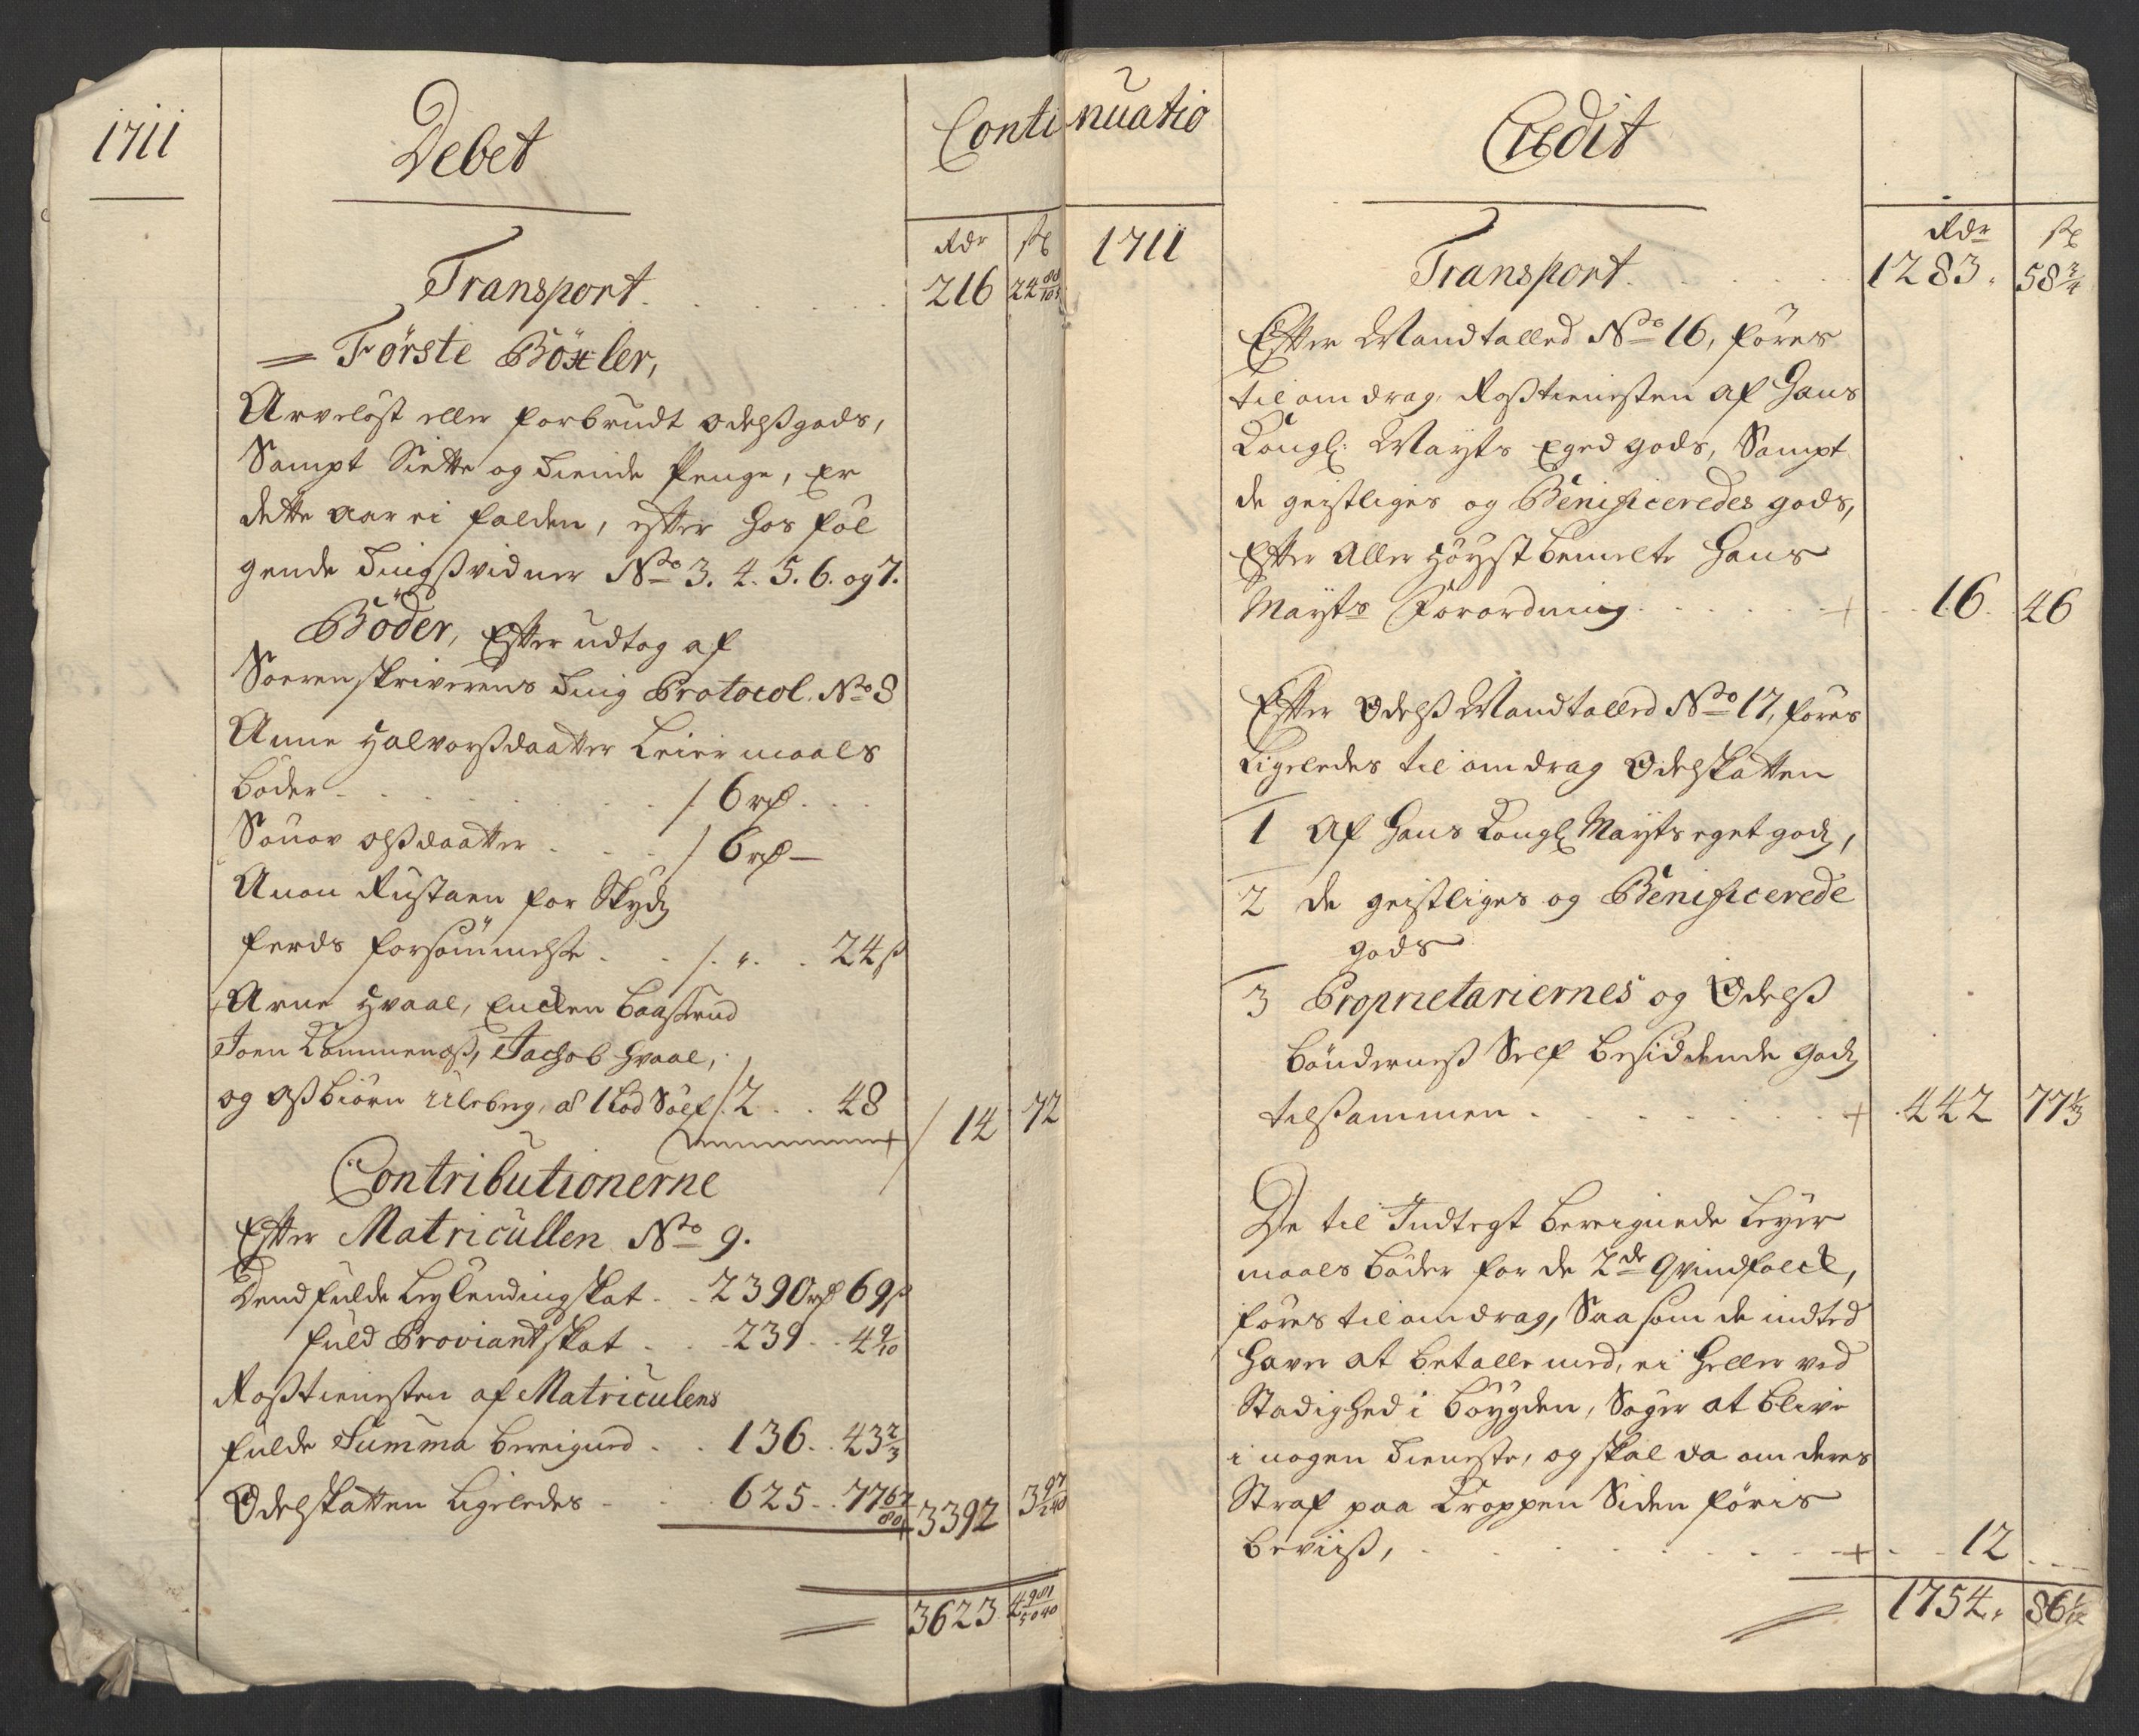 1711
Debet
Continuatio
Rdr ß
Transport. 216 24 88/105
Förste Böxler,
Arveløst eller forbrudt odelßgods,
Sampt Siette og tiende Penge, Er
dette aar ei falden, efter hos föl
gende Tingßvidner No 3. 4. 5. 6. og 7.
Böder, Efter udtog af
Soerenskriverens Ting Protocol. No 8
Anne Halvorßdaatter Leiermaals
böder . . . 6 rd
olßdaatter . . . 6 rd —
Rustaen for Skydz
ferds forsømmelse . . . „ . 24 ß
Arne Hvaal, Baaßrud
Joen Jachob Hvaal,
og Aßbiörn Uleberg, a 1 Lod Sölf 2 . . 48
14 72
Contributionerne
Efter Matricullen No 9.
Dend fulde Leylendingskat . . 2390 rd 69 ß
fuld Proviantskat . . 239 . . 4 9/10
Roßtienesten af Matriculens
fulde Summa bereigned . . 136 . . 43 2/3
Odelskatten Ligeledes . . 625 . . 77 67/80
3392 3 97/240
3623 4 981/5040
Credit
1711
Rdr ß
Transport. 1283. 58 3/4
Efter Mandtalled No 16, föres
til omdrag Roßtienesten af Hans
Kongl: Mayts Eged gods, Sampt
de geistliges og Benificeredes gods,
Efter Aller höystbemelte Hans
Mayts Forordning . . . 16. 46
Efter Odelß Mandtalled No 17, föres
Ligeledes til omdrag Odelskatten
1 Af Hans Kongl Mayts eget godz,
2 de geistliges og Benificerede
gods
3 Proprietariernes og Odelß
böndernes Self besiddende godz
tilsammen . . . 442 77 1/3
De til Indtegt bereignede Leyer
maals böder for de 2de Qvindfolck,
föres til omdrag, Saa som de indted
haver at betalle med, ei heller ved
Stadighed i böygden, Söger at blive
i nogen tieneste, og skal da om deres
Straf paa Kroppen Siden föris
beviiß, . . . 12
1754. 86 1/12